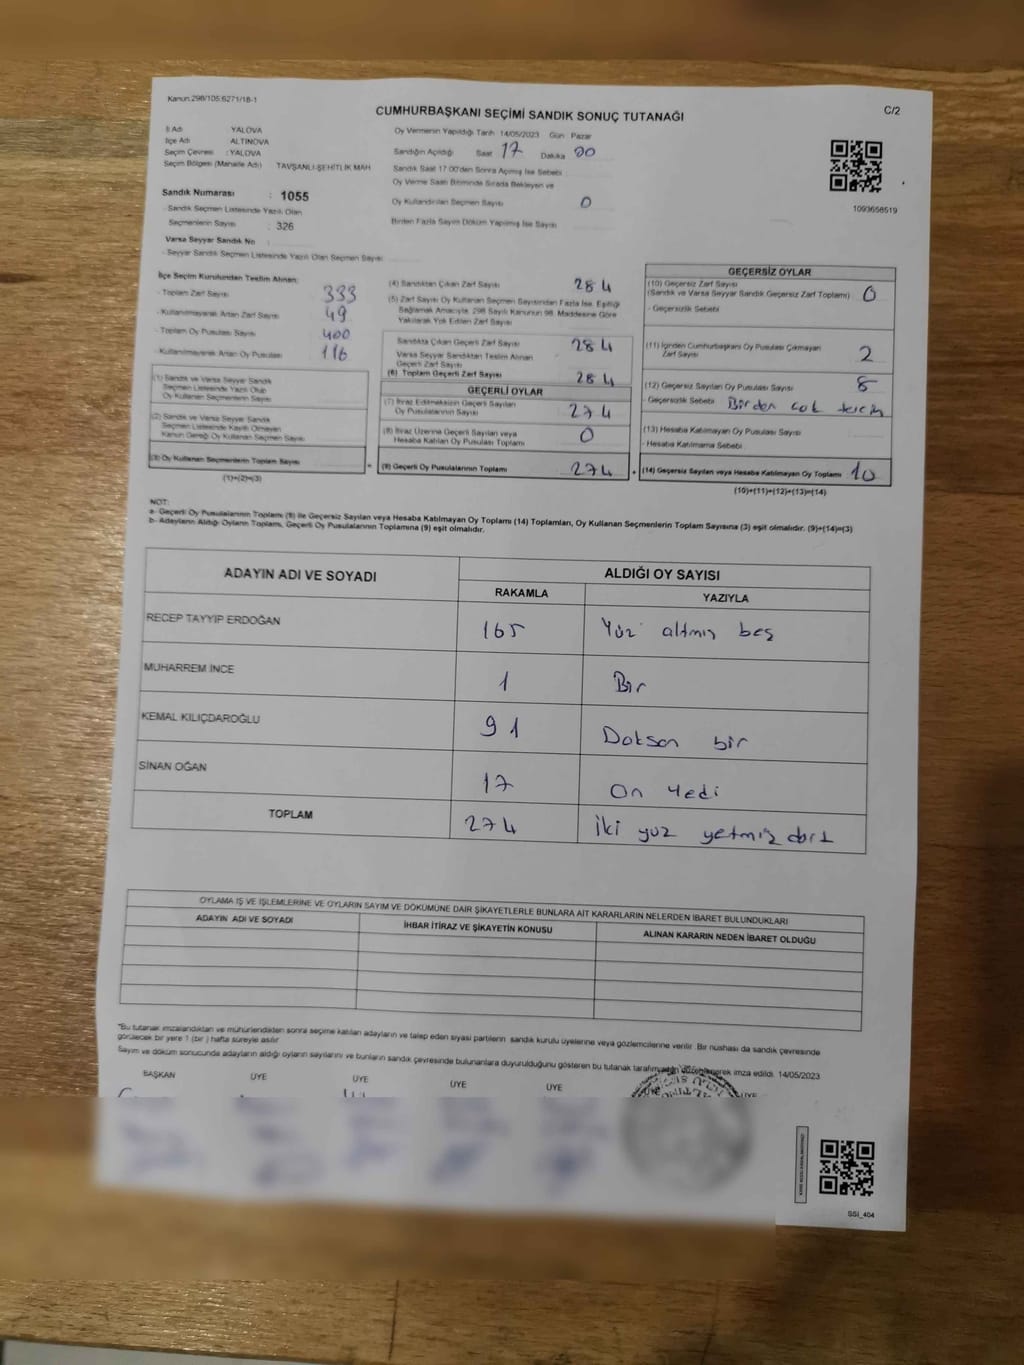 Kanun:298/105:6271/18-1
C/2
CUMHURBAŞKANI SEÇİMİ SANDIK SONUÇ TUTANAĞI
İl Adı YALOVA
İlçe Adı ALTINOVA
Seçim Çevresi : YALOVA
Seçim Bölgesi (Mahalle Adı) TAVŞANLI-ŞEHİTLİK MAH
Sandık Numarası : 1055
- Sandık Seçmen Listesinde Yazılı Olan
Seçmenlerin Sayısı : 326
Varsa Seyyar Sandık No :
- Seyyar Sandık Seçmen Listesinde Yazılı Olan Seçmen Sayısı
Oy Vermenin Yapıldığı Tarih 14/05/2023 Gün Pazar
Sandığın Açıldığı Saat 17 Dakika 00
Sandık Saat 17.00'den Sonra Açılmış İse Sebebi
Oy Verme Saati Bitiminde Sırada Bekleyen ve
Oy Kullandırılan Seçmen Sayısı 0
Birden Fazla Sayım Döküm Yapılmış İse Sayısı
1093658519
İlçe Seçim Kurulundan Teslim Alınan:
- Toplam Zarf Sayısı 333
- Kullanılmayarak Artan Zarf Sayısı 49
- Toplam Oy Pusulası Sayısı 400
- Kullanılmayarak Artan Oy Pusulası 116
(1) Sandık ve Varsa Seyyar Sandık
Seçmen Listesinde Yazılı Olup
Oy Kullanan Seçmenlerin Sayısı
(2) Sandık ve Varsa Seyyar Sandık
Seçmen Listesinde Kayıtlı Olmayan
Kanun Gereği Oy Kullanan Seçmen Sayısı
(3) Oy Kullanan Seçmenlerin Toplam Sayısı
(1)+(2)=(3)
(4) Sandıktan Çıkan Zarf Sayısı 284
(5) Zarf Sayısı Oy Kullanan Seçmen Sayısından Fazla İse, Eşitliği
Sağlamak Amacıyla, 298 Sayılı Kanunun 98. Maddesine Göre
Yakılarak Yok Edilen Zarf Sayısı
Sandıkta Çıkan Geçerli Zarf Sayısı 284
Varsa Seyyar Sandıktan Teslim Alınan
Geçerli Zarf Sayısı
(6) Toplam Geçerli Zarf Sayısı 284
GEÇERLİ OYLAR
(7) İtiraz Edilmeksizin Geçerli Sayılan
Oy Pusulalarının Sayısı 274
(8) İtiraz Üzerine Geçerli Sayılan veya
Hesaba Katılan Oy Pusulası Toplamı 0
= (9) Geçerli Oy Pusulalarının Toplamı 274
GEÇERSİZ OYLAR
(10) Geçersiz Zarf Sayısı
(Sandık ve Varsa Seyyar Sandık Geçersiz Zarf Toplamı) 0
- Geçersizlik Sebebi
(11) İçinden Cumhurbaşkanı Oy Pusulası Çıkmayan
Zarf Sayısı 2
(12) Geçersiz Sayılan Oy Pusulası Sayısı 8
- Geçersizlik Sebebi Birden çok tercih
(13) Hesaba Katılmayan Oy Pusulası Sayısı
- Hesaba Katılmama Sebebi
+ (14) Geçersiz Sayılan veya Hesaba Katılmayan Oy Toplamı 10
(10)+(11)+(12)+(13)=(14)
NOT:
a- Geçerli Oy Pusulalarının Toplamı (9) ile Geçersiz Sayılan veya Hesaba Katılmayan Oy Toplamı (14) Toplamları, Oy Kullanan Seçmenlerin Toplam Sayısına (3) eşit olmalıdır. (9)+(14)=(3)
b- Adayların Aldığı Oyların Toplamı, Geçerli Oy Pusulalarının Toplamına (9) eşit olmalıdır.
ADAYIN ADI VE SOYADI ALDIĞI OY SAYISI
RAKAMLA YAZIYLA
RECEP TAYYİP ERDOĞAN 165 Yüz altmış beş
MUHARREM İNCE 1 Bir
KEMAL KILIÇDAROĞLU 91 Doksan bir
SİNAN OĞAN 17 On Yedi
TOPLAM 274 İki yüz yetmiş dört
OYLAMA İŞ VE İŞLEMLERİNE VE OYLARIN SAYIM VE DÖKÜMÜNE DAİR ŞİKAYETLERLE BUNLARA AİT KARARLARIN NELERDEN İBARET BULUNDUKLARI
ADAYIN ADI VE SOYADI İHBAR İTİRAZ VE ŞİKAYETİN KONUSU ALINAN KARARIN NEDEN İBARET OLDUĞU
"Bu tutanak imzalandıktan ve mühürlendikten sonra seçime katılan adayların ve talep eden siyasi partilerin sandık kurulu üyelerine veya gözlemcilerine verilir. Bir nüshası da sandık çevresinde
görülecek bir yere 1 (bir ) hafta süreyle asılır
Sayım ve döküm sonucunda adayların aldığı oyların sayılarını ve bunların sandık çevresinde bulunanlara duyurulduğunu gösteren bu tutanak tarafımızdan düzenlenerek imza edildi. 14/05/2023
BAŞKAN ÜYE ÜYE ÜYE ÜYE ÜYE
SSI_404